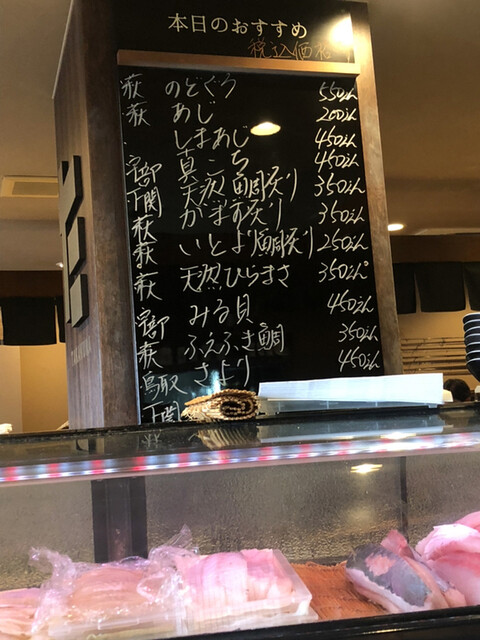 本日のおすすめ
税込価格
萩 のどぐろ 550えん
萩 あじ 200えん
しまあじ 450えん
宇部 真こち 450えん
下関 天然鯛炙り 350えん
萩 かます炙り 350えん
萩 いとより鯛炙り 250えん
萩 天然ひらまさ 350えん
宇部 みる貝 450えん
萩 ふえふき鯛 350えん
鳥取 さより 450えん
下関